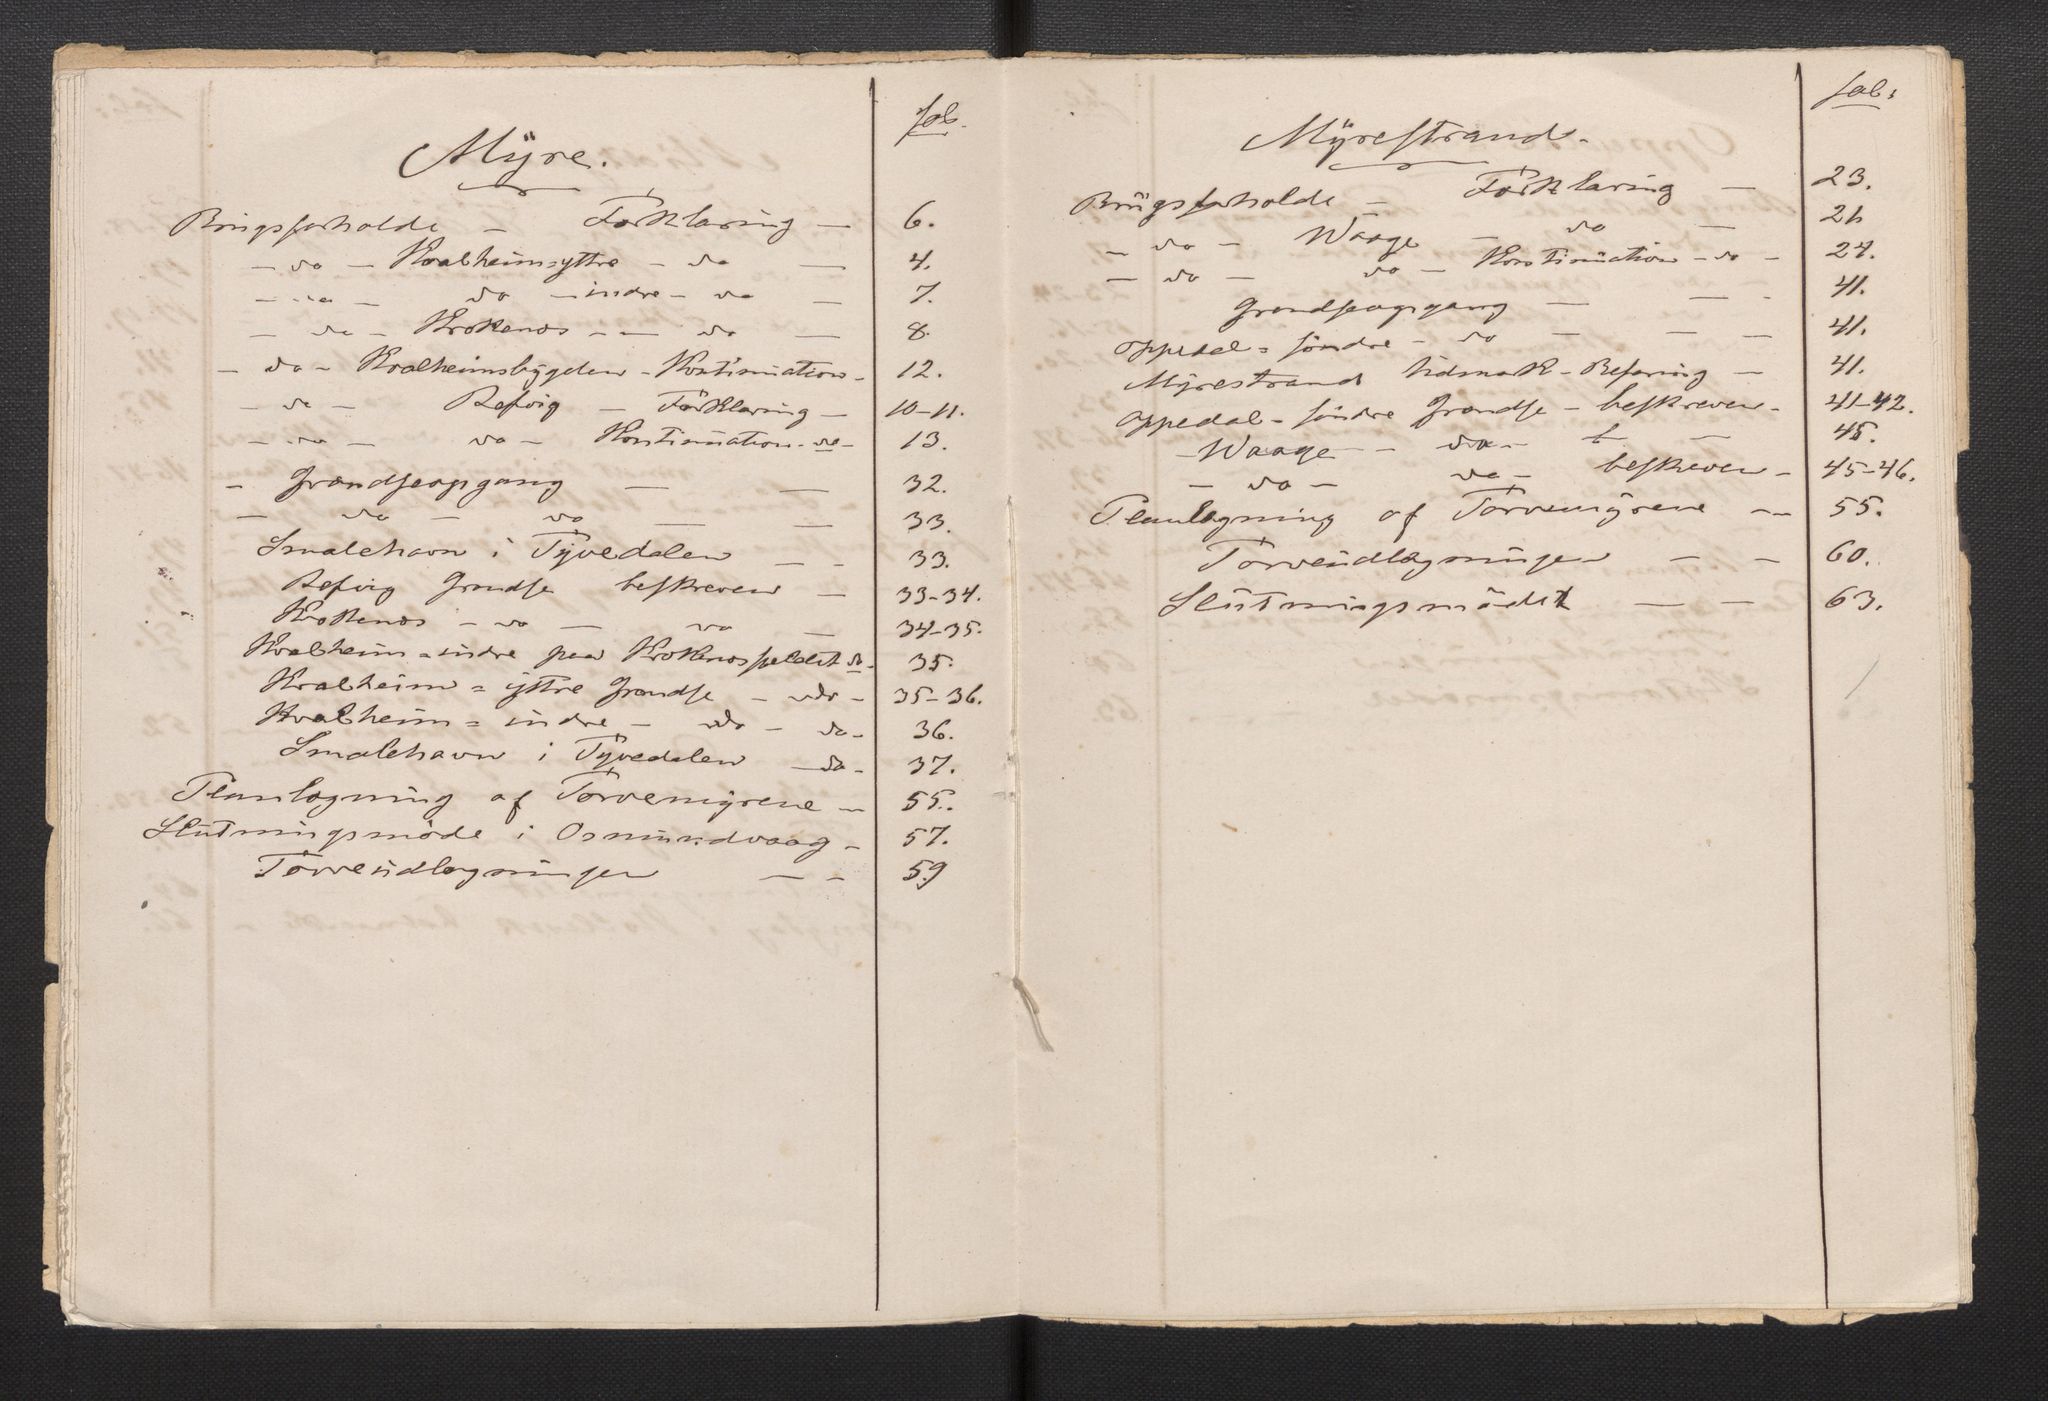 fol.
Myre.
Brugsforholde — Forklaring — 6.
— do — Kvalheim=yttre — do — 4.
— do — do — indre — do — 7.
— do — Krokenæs — — do — 8.
— do — Kvalheimsbygden — Kontinuation — 12.
— do — Refvig — Forklaring — 10-11.
— do — do — Kontinuation — do — 13.
— Grændseopgang — — 32.
— do — do — — 33.
Smalehavn i Tyvedalen — — 33.
Refvig Grændse beskreven — 33-34.
Krokenæs — do — do — 34-35.
Kvalheim=indre paa Krokenæsfeldet do — 35.
Kvalheim=yttre Grændse — do — 35-36.
Kvalheim=indre — do — do — 36.
Smalehavn i Tyvedalen — do — 37.
Planlægning af Torvemyrene — 55.
Slutningsmøde i Osmundvaag — 57.
Torveudlægningen — — 59
fol.
Myrestrand.
Brugsforholde — Forklaring — 23.
— do — Waage — do — 21
— do — do — Kontinuation — do — 24.
Grændseopgang — — 41.
Oppedal=søndre — do — — — 41.
Myrestrand Udmark — Befaring — 41.
Oppedal=søndre Grændse — beskreven — 41-42.
— Waage — do — — 45.
— do — do — beskreven — 45-46.
Planlægning af Torvemyrene — 55.
Torveudlægningen — — 60.
Slutningsmødet — — 63.